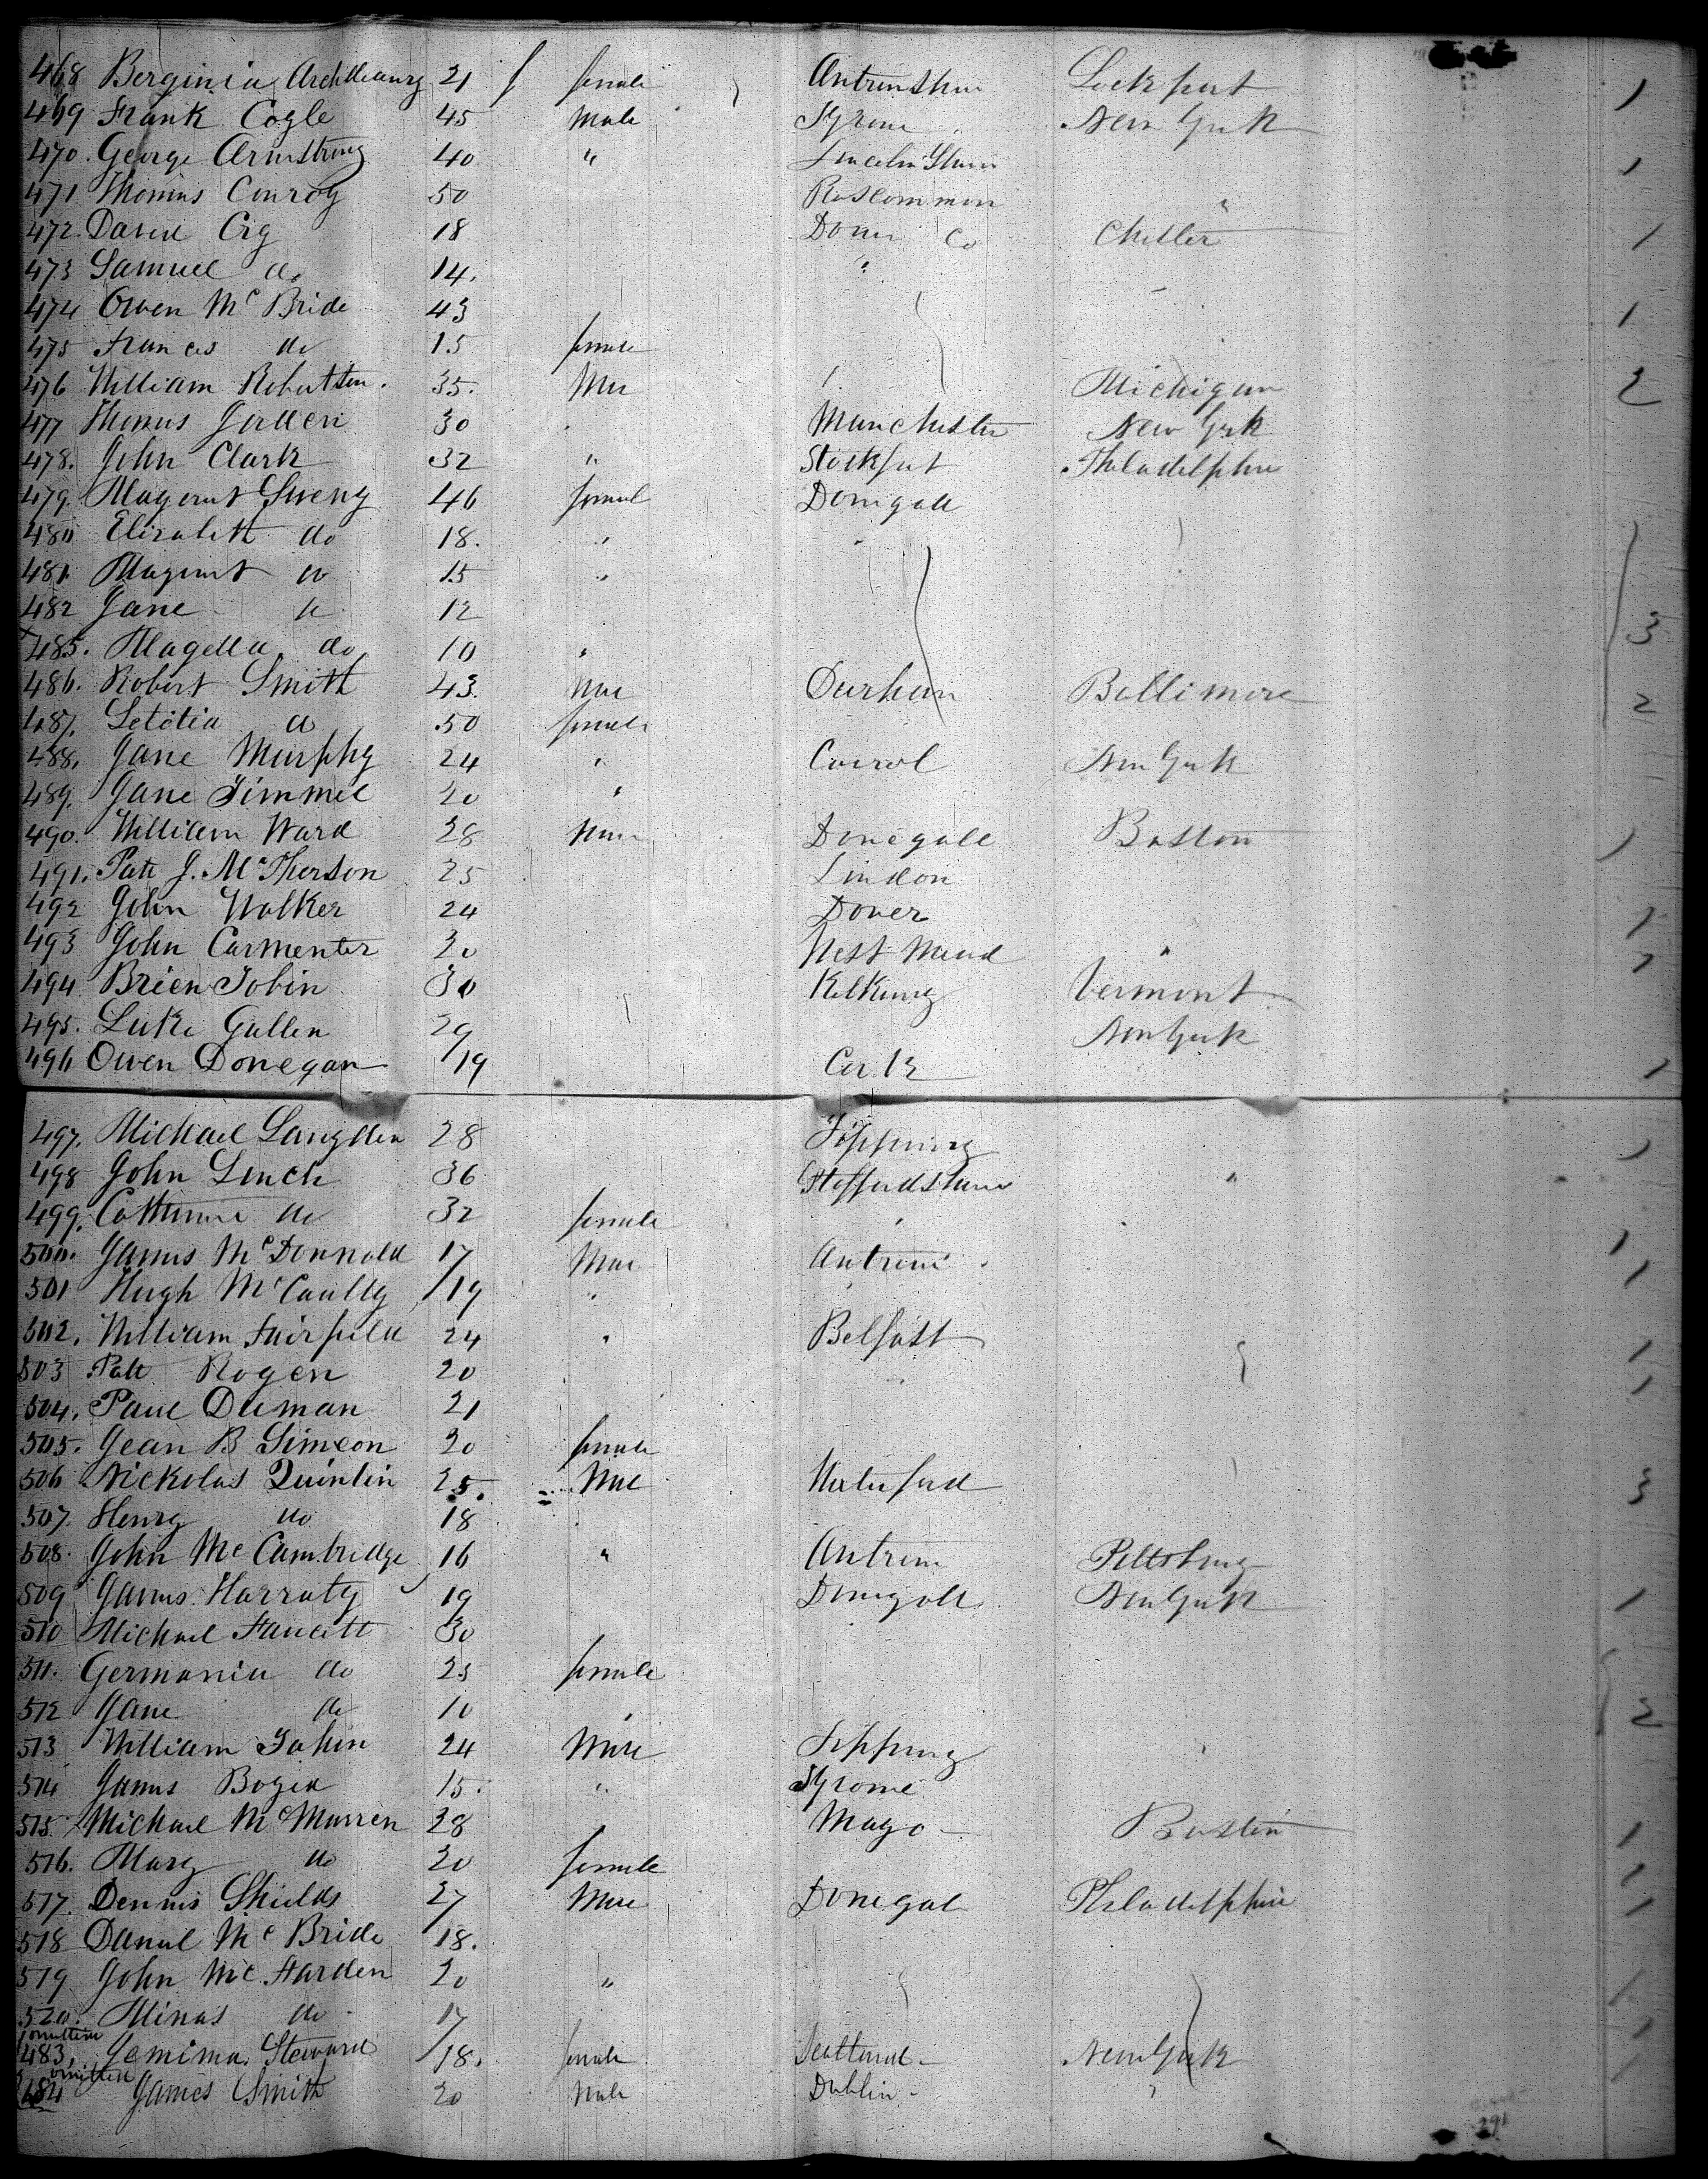 468 Berginia 21 female Antrimshire Lockport 1
469 Frank Cogle 45 Male Tyrone New York
470. George Armstrong 40 " Lincolnshire 1
471 Thomas Conroy 50 Roscommon "
472. David Crg 18 Down Co Chester 1
473 Samuel do 14. "
474 Owen Mc Bride 43 1
475 Frances do 15 female
476 William Robertson. 35. Male Michigan 2
477 Thomas Jorden 30 Manchester New York
478. John Clark 32 " Stockport Philadelphia
479. Magerat Sweny 46 femal Donigall
480 Elizabeth do 18. "
481. Magerat do 15 "
482 Jane do 12
485. Magella do 10 " 3
486. Robert Smith 43. Male Durham Baltimore 2
487. Letitia do 50 female
488. Jane Murphy 24 " New York
489. Jane Timmel 20 "
490. William Ward 28 Male Donegall Boston 1
491. Patk J. McPherson 25 London
492 John Walker 24 Dover 1
493 John Carmenter 20 West Mead " 1
494 Brien Tobin 30 Kilkeny Vermont
495. Luke Gallen 29 New York
496 Owen Donegan 19 Cork 1
497. Michael Langden 28 Tipprury 1
498 John Linch 36 Staffordshire "
499. Catherine do 32 female "
500. James McDonnald 17 Male Antrim 1
501 Hugh McCaully 19 " 1
502. William Fairfield 24 " Belfast 1
503 Patk Rogen 20 1
504. Paul Duman 21
505. Jean B Simeon 20 female
506 Nickolas Quinlin 25. Male Waterford 3
507. Henry do 18
508. John McCambridge 16 " Antrim Pittsburg
509 James Harraty 19 Donigall New York 1
510 Michael Faucitt 30
511. Germania do 25 female
512 Jane do 10 " 2
513 William Tobin 24 Male Tipprury
514 James Bogid 15. " Tyrone
515 Michael McMurren 28 Mayo Boston 1
516. Mary do 20 female 1
517. Dennis Shields 27 Male Donegal Philadelphia 1
518 Danul Mc Bride 18.
519 John Mc Harden 20 " 1
520. Minas do 17 1
omitted
483. Jemima Steward 18. female Scotland New York 1
omitted
484 James Smith 20 Male Dublin "
291